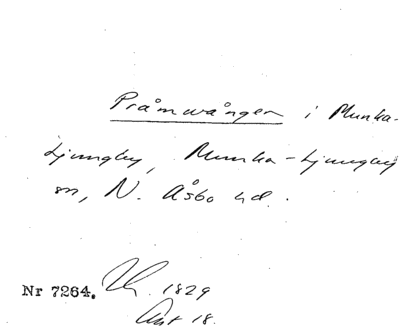 Pråmvången i Munka-
Ljungby, Munka-Ljungby
sn, N. Åsbo hd.
Nr 7264. 1829
Akt 18.